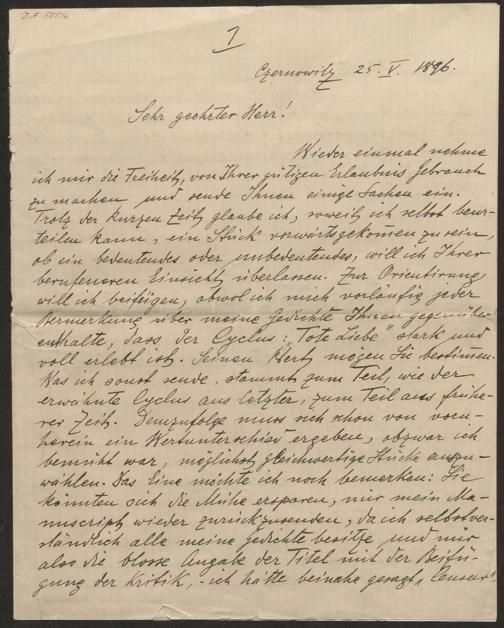 D.N. 50516
1
Czernowitz 25. V. 1896.
Sehr geehrter Herr!
Wieder einmal nehme
ich mir die Freiheit, von Ihrer gütigen Erlaubnis Gebrauch
zu machen und sende Ihnen einige Sachen ein.
Trotz der kurzen Zeit glaube ich, soweit ich selbst beur-
teilen kann, ein Stück vorwärtsgekommen zu sein,
ob ein bedeutendes oder unbedeutendes, will ich Ihrer
berufeneren Einsicht überlassen. Zur Orientirung
will ich beifügen, obwol ich mich vorläufig jeder
Bemerkung über meine Gedichte Ihnen gegenüber
enthalte, dass der Cyclus: „Tote Liebe" stark und
voll erlebt ist. Seinen Wert mögen Sie bestimmen.
Was ich sonst sende, stammt zum Teil, wie der
erwähnte Cyclus aus letzter, zum Teil aus frühe-
rer Zeit. Demzufolge muss sich schon von vorn-
herein ein Wertunterschied ergeben, obzwar ich
bemüht war, möglichst gleichwertige Stücke auszu-
wählen. Das Eine möchte ich noch bemerken: Sie
könnten sich die Mühe ersparen, mir mein Ma-
nuscript wieder zurückzusenden, da ich selbstver-
ständlich alle meine Gedichte besitze und mir
also die blosse Angabe der Titel mit der Beifü-
gung der Kritik, - ich hätte beinahe gesagt „Censur"